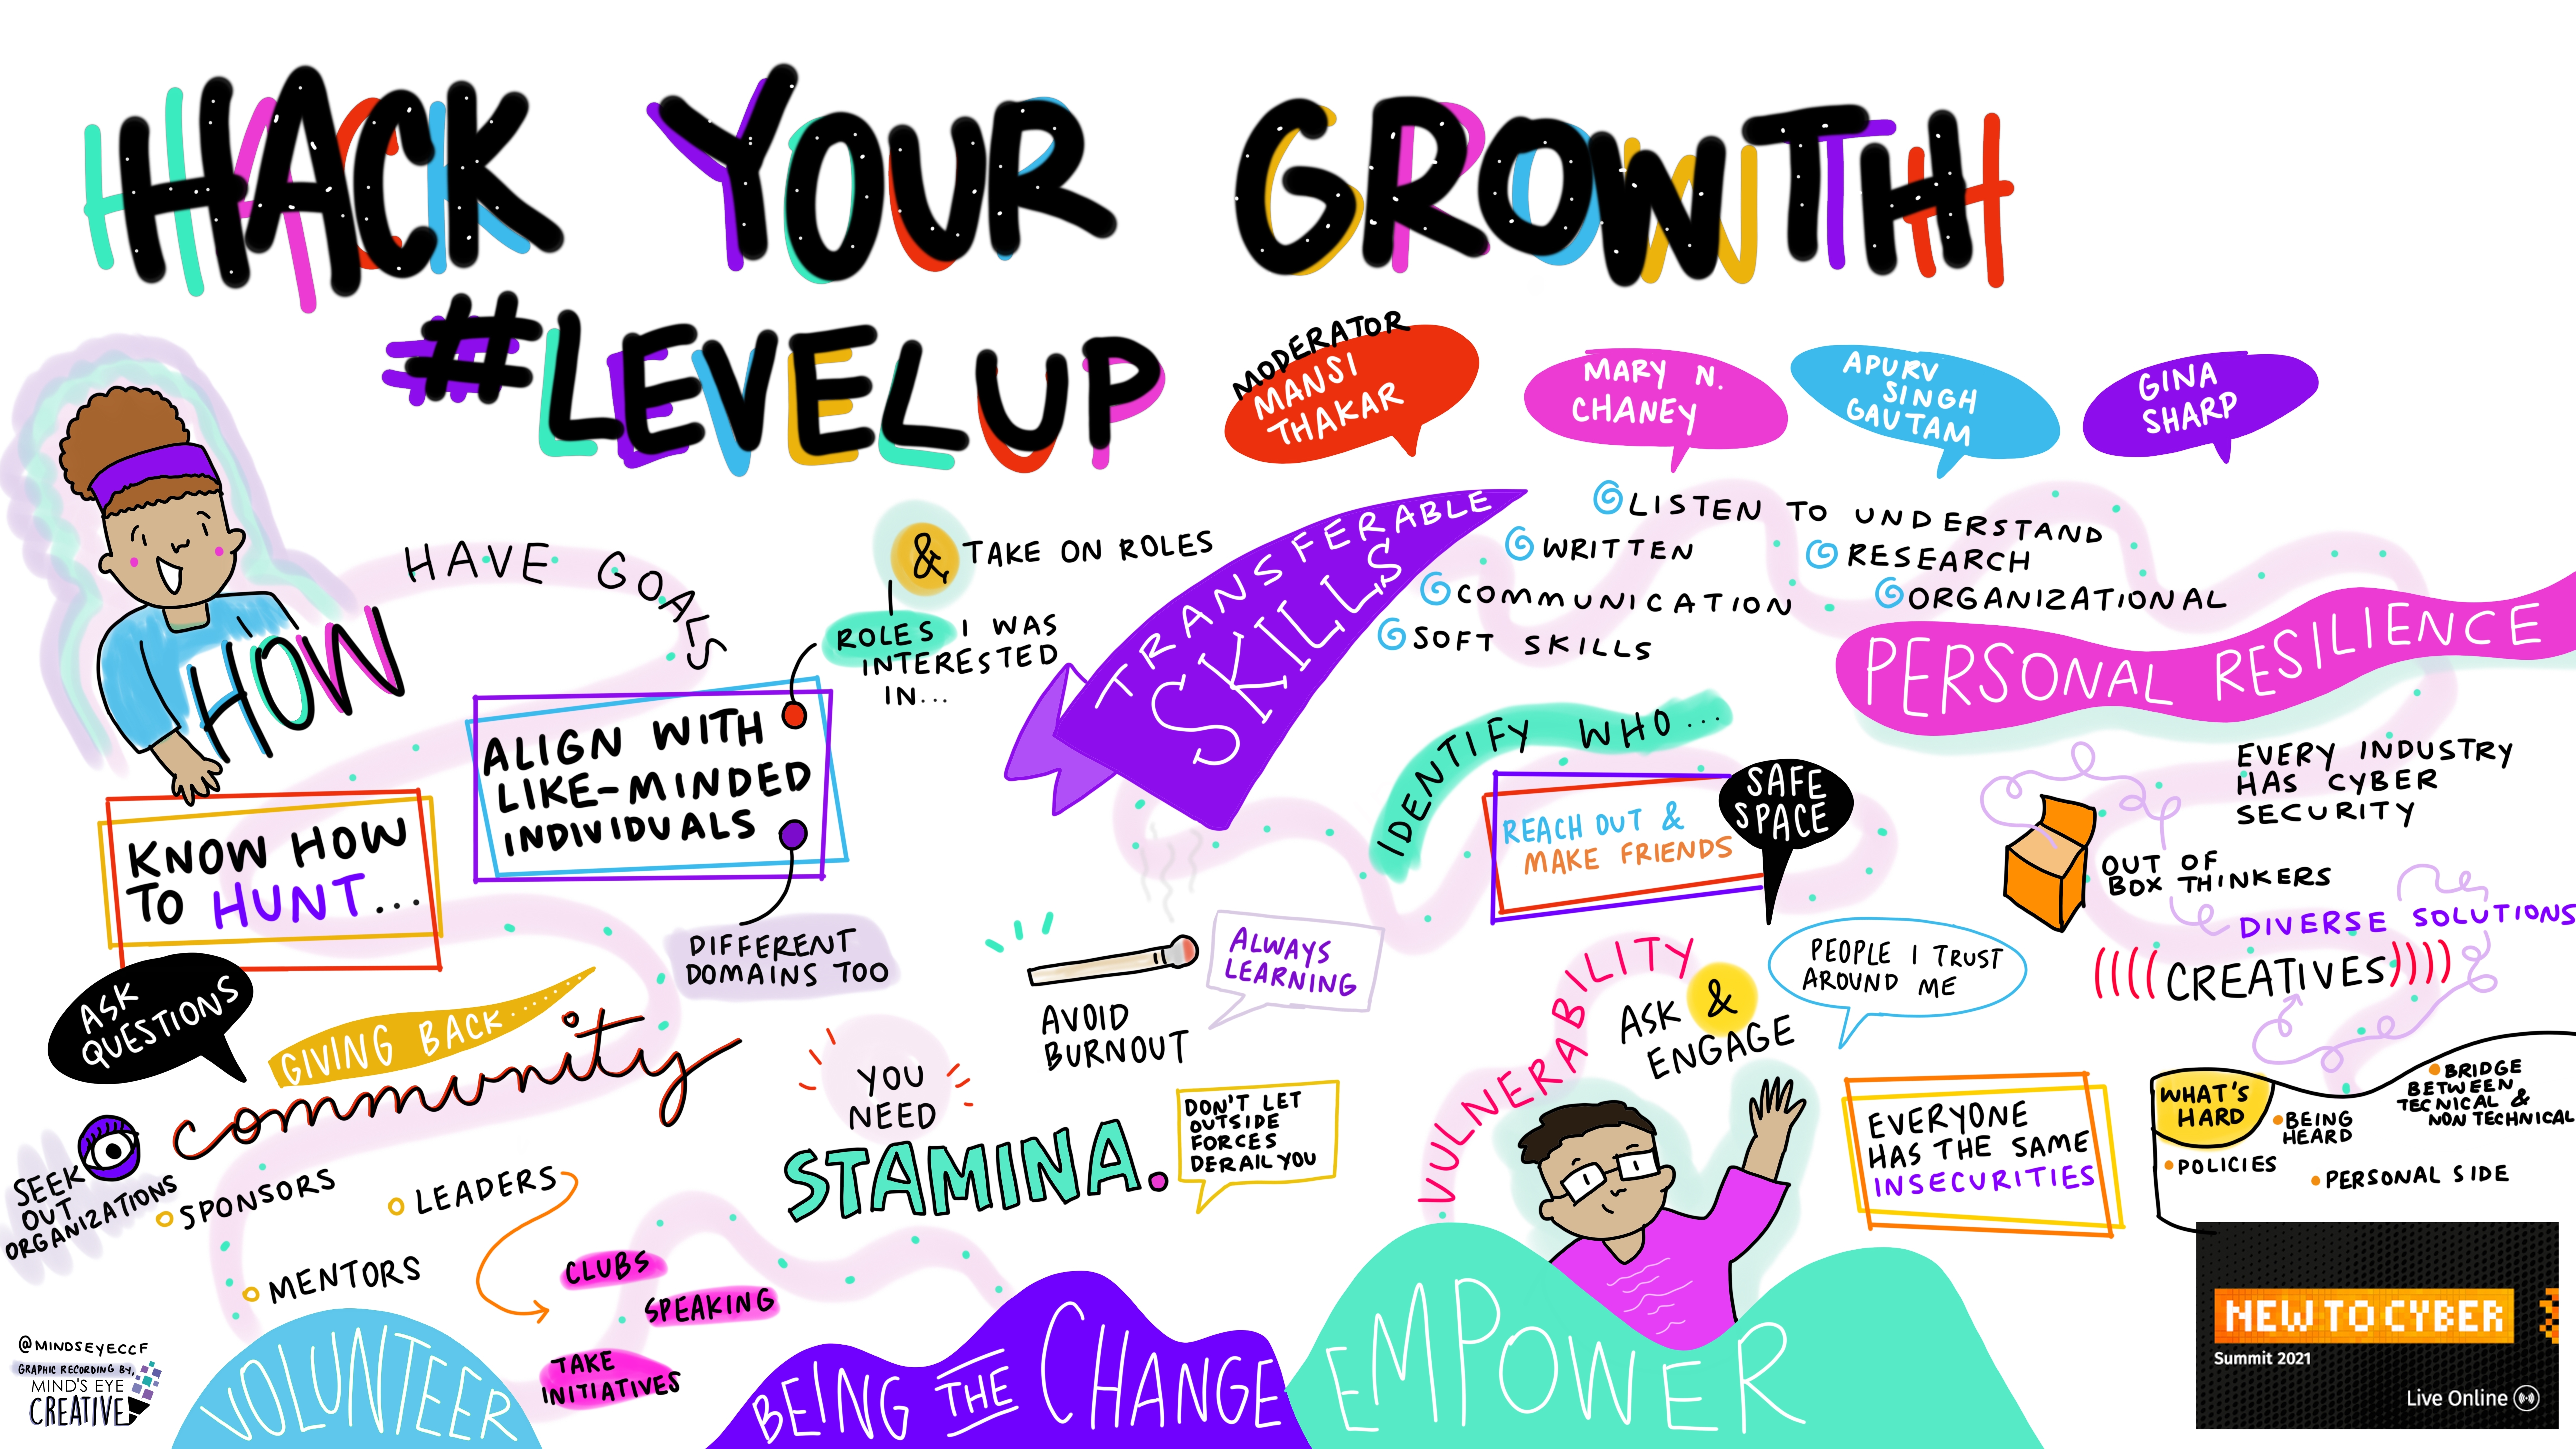 HACK YOUR GROWTH
#LEVELUP
MODERATOR
MANSI
THAKAR
MARY N.
CHANEY
APURV
SINGH
GAUTAM
GINA
SHARP
HOW
HAVE GOALS
& TAKE ON ROLES
ROLES I WAS
INTERESTED
IN...
ALIGN WITH
LIKE-MINDED
INDIVIDUALS
DIFFERENT
DOMAINS TOO
KNOW HOW
TO HUNT...
ASK
QUESTIONS
GIVING BACK......
community
SEEK
OUT
ORGANIZATIONS
SPONSORS
LEADERS
MENTORS
CLUBS
SPEAKING
TAKE
INITIATIVES
VOLUNTEER
@MINDSEYECCF
GRAPHIC RECORDING BY,
MIND'S EYE
CREATIVE
TRANSFERABLE
SKILLS
LISTEN TO UNDERSTAND
WRITTEN
RESEARCH
COMMUNICATION
ORGANIZATIONAL
SOFT SKILLS
AVOID
BURNOUT
ALWAYS
LEARNING
YOU
NEED
STAMINA.
DON'T LET
OUTSIDE
FORCES
DERAIL YOU
BEING THE CHANGE
IDENTIFY WHO...
REACH OUT &
MAKE FRIENDS
SAFE
SPACE
VULNERABILITY
ASK &
ENGAGE
PEOPLE I TRUST
AROUND ME
EMPOWER
PERSONAL RESILIENCE
EVERY INDUSTRY
HAS CYBER
SECURITY
OUT OF
BOX THINKERS
DIVERSE SOLUTIONS
((((CREATIVES))))
EVERYONE
HAS THE SAME
INSECURITIES
WHAT'S
HARD
BEING
HEARD
BRIDGE
BETWEEN
TECNICAL &
NON TECHNICAL
POLICIES
PERSONAL SIDE
NEW TO CYBER
Summit 2021
Live Online